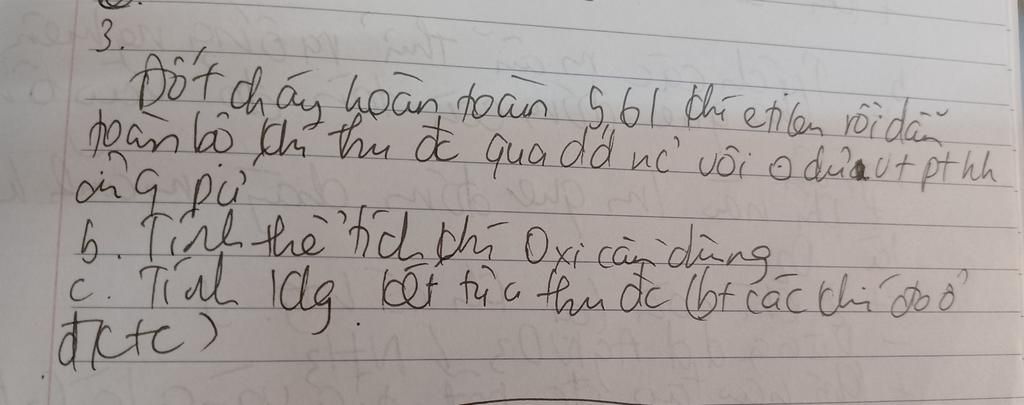 3.
Đốt cháy hoàn toàn 5,6l khí etilen rồi dẫn
toàn bộ khí thu đc qua dd nc vôi dư Vt pthh
ứng pứ
b. Tính thể tích khí Oxi cần dùng
c. Tính klg kết tủa thu đc (bt các khí đo ở
đktc)